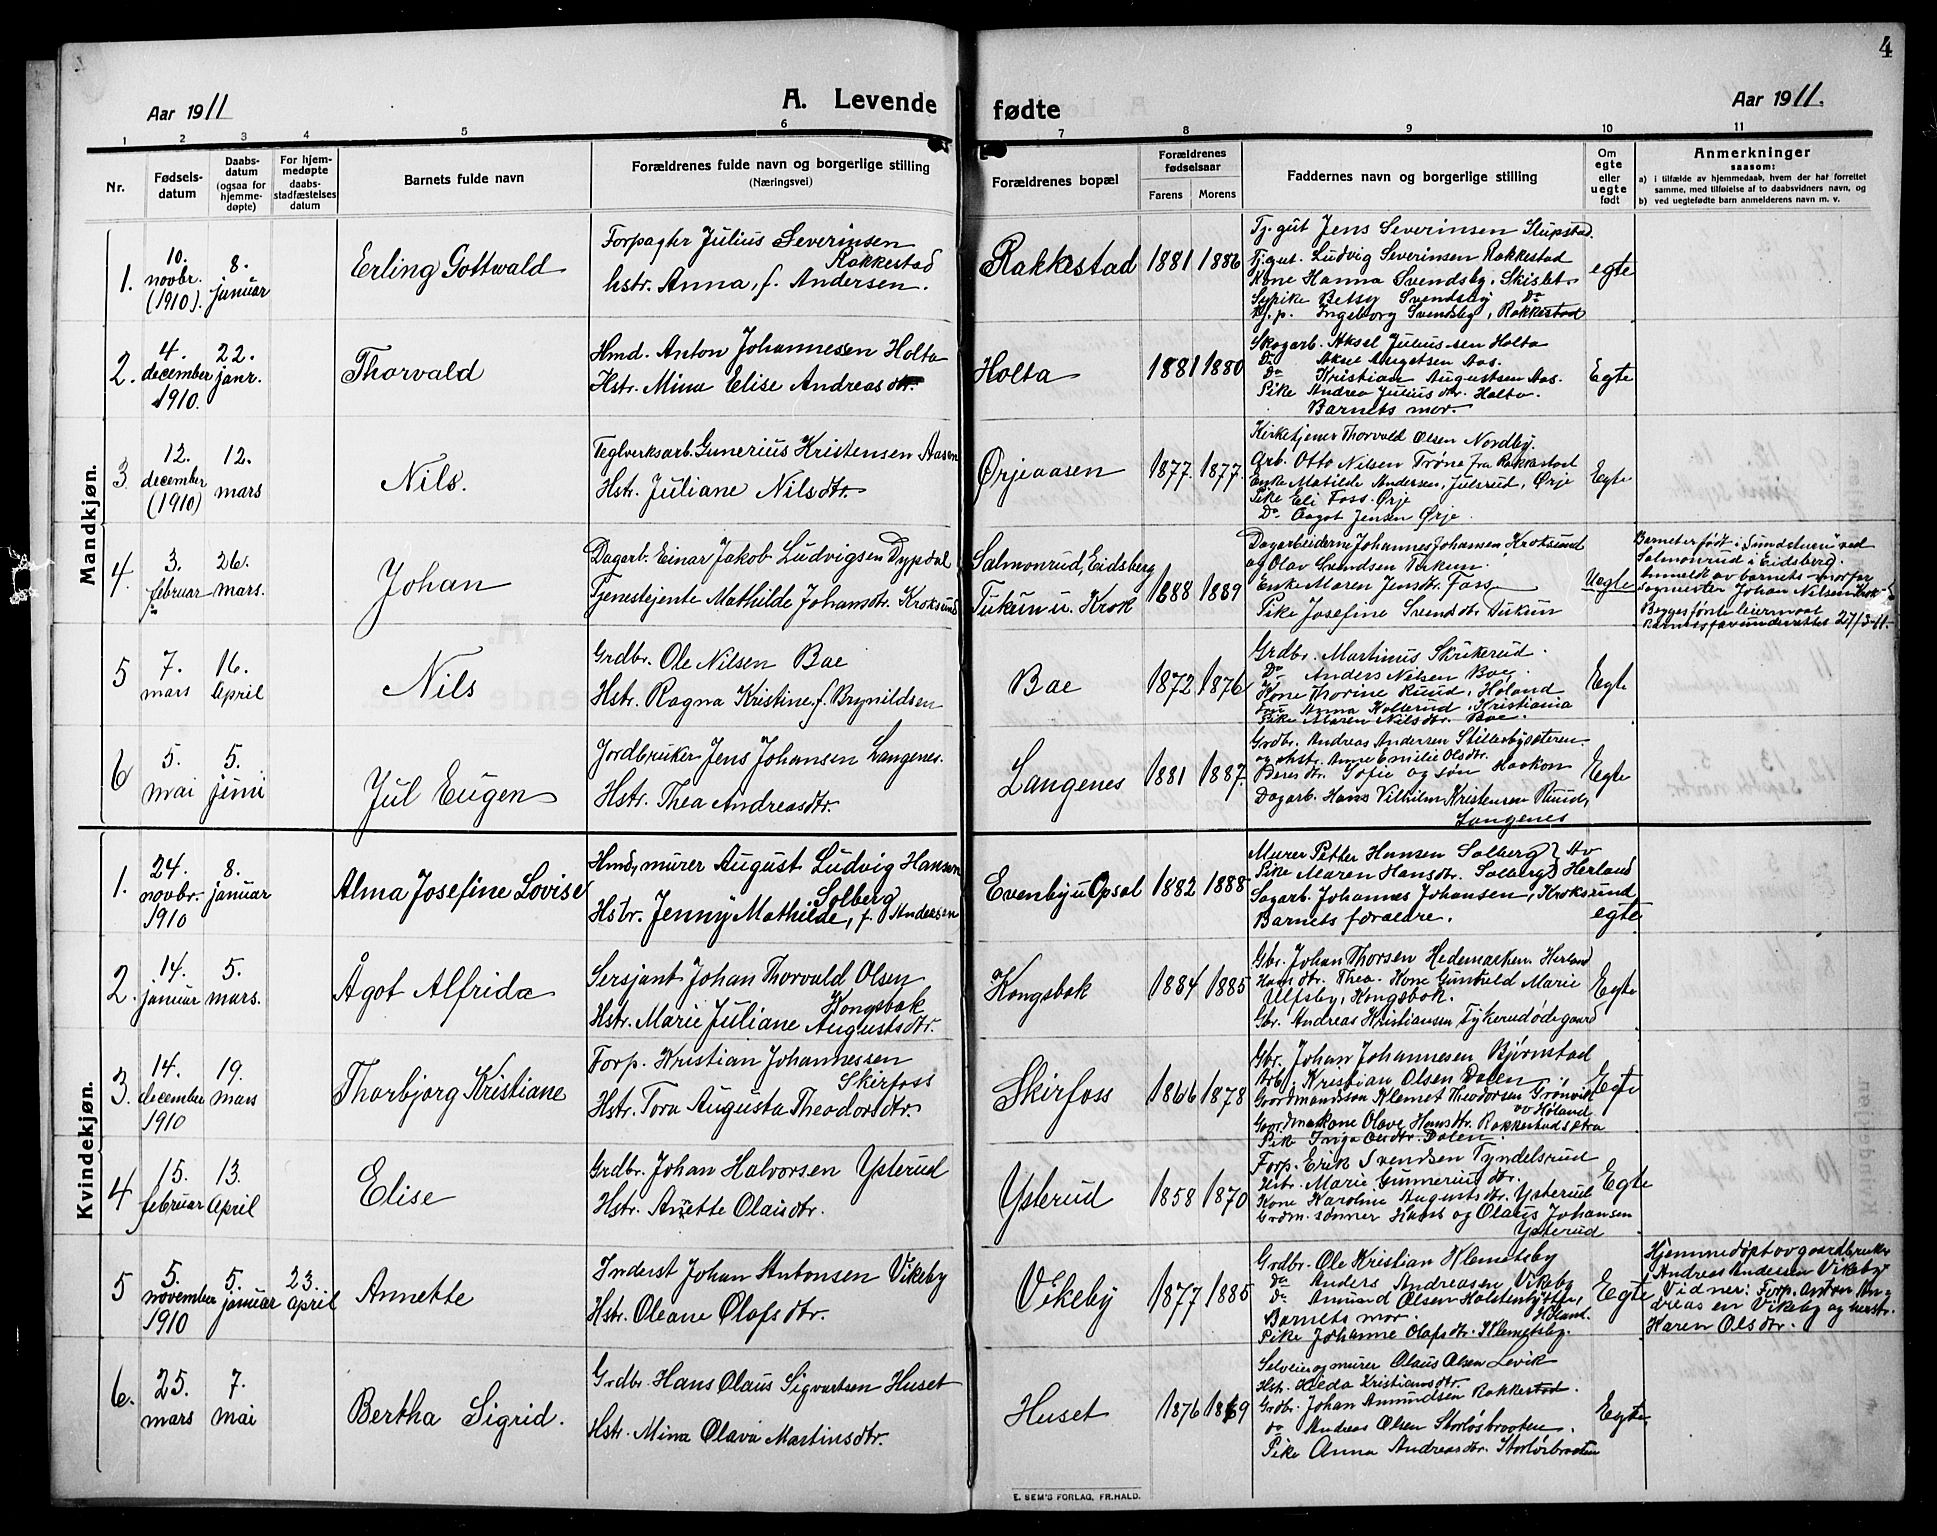 4
Aar 1911
A. Levende fødte
Aar 1911.
1 2 3 4 5 6 7 8 9 10 11
Nr.
Fødsels-
datum
Daabs-
datum
(ogsaa for
hjemme-
døpte)
For hjem-
medøpte
daabs-
stadfæstelses
datum
Barnets fulde navn
Forældrenes fulde navn og borgerlige stilling
(Næringsvei)
Forældrenes bopæl
Forældrenes
fødselsaar
Farens Morens
Faddernes navn og borgerlige stilling
Om
egte
eller
uegte
født
Anmerkninger
saasom:
a) i tilfælde av hjemmedaab, hvem der har forrettet
samme, med tilføielse af to daabsvidners navn, og
b) ved uegtefødte barn anmelderens navn m. v.
Mandkjøn.
1. 10. novbr. (1910). 8. januar
Erling Gottwald
Forpagter Julius Severinsen
Rakkestad
hstr. Anna, f. Andersen.
Rakkestad 1881 1886
Tj.gut Jens Severinsen Slupstad.
Tj.gut. Ludvig Severinsen Rakkestad
Kone Hanna Svendsby, Skislet
Sypike Betsy Svendsby Do
Tj. p. Ingeborg Svendsby, Rakkestad
egte
2. 4. december 1910. 22. janr.
Thorvald
Hmd. Anton Johannesen Holta
Hstr. Mina Elise Andreasdtr.
Holta 1881 1880
Skogarb. Aksel Juliussen Holta
Do Aksel Augstsen Aas.
Do Kristian Augustsen Aas.
Pike Andrea Juliusdtr. Holta.
Barnets mor.
Egte
3 12. december (1910) 12. mars
Nils.
Teglverksarb. Gunerius Kristensen Aasen
Hstr. Juliane Nilsdtr.
Ørjeaasen 1877. 1877.
Kirketjener Thorvald Olsen Nordby.
Arb. Otto Nilsen Trøne fra Rakkestad
Enke Matilde Andersen, Julsrud, Ørje
Pike Eli Foss. Ørje
Do Aagot Jensen Ørje
Egte
4. 3. februar 26. mars.
Johan
Dagarb. Einar Jakob Ludvigsen Dypedal
Tjenestejente Mathilde Johansdtr. Kroksund
Salmonrud, Eidsberg
Tukun u. Krok
1888 1889
Dagarbeiderne Johannes Johansen Kroksund
og Olav Svendsen Tukun.
Enke Maren Jensdtr. Foss
Pike Josefine Svendsdtr. Tukun
Uegte
Barnet er født i "Sundelven" ved
Salmonrud i Eidsberg.
Anmeldt av barnets morfar
sagmester Johan Nilsen Krok
Begges første leiermaal
Barnefar underrettet 27/3-11.
5 7. mars 16. April
Nils
Grdbr. Ole Nilsen Bae
Hstr. Ragna Kristine, f. Brynildsen
Bae 1872 1876
Grdbr. Martinus Skukerud.
Do Anders Nilsen Bae,
Kone Thorine Ruud, Høland
Fru Anna Kollerud, Kristiania
Pike Maren Nilsdtr. Bae.
Egte
6 5. mai 5. juni
Jul Eugen
Jordbruker Jens Johansen Langenes.
Hstr. Thea Andreasdtr.
Langenes 1881 1887.
Grdbr. Andreas Andersen Stillerbysæteren.
og hst. Anne Emilie Olsdtr.
Deres dtr. Sofie og søn Haakon
Dagarb. Hans Vilhelm Kristensen Ruud,
Langenes
Egte
Kvindekjøn.
1. 24. novbr. 1910 8. januar
Alma Josefine Lovise
Hmd., murer August Ludvig Hansen
Solberg
Hstr. Jenny Mathilde, f. Andersen
Evenby u Opsal 1882 1888
Murer Petter Hansen Solberg } Av
Pike Maren Hansdtr. Solberg } Herland
Sagarb. Johannes Johansen, Kroksund
Barnets forældre.
egte
2. 14. januar 5. mars.
Ågot Alfrida
Sersjant Johan Thorvald Olsen
Kongsbok
Hstr. Marie Juliane Augustsdtr.
Kongsbok 1884 1885
Gbr. Johan Thorsen Hedemarken Herland
Hansdtr. Thea. Kone Gunhild Marie
Ulfsby, Kongsbok.
Gbr. Andreas Kristiansen Tykerudødegaard
Egte
3. 14. december 1910 19. mars
Thorbjørg Kristiane
Forp. Kristian Johannessen
Skirfoss
Hstr. Tora Augusta Theodorsdtr.
Skirfoss 1866 1878
Gbr. Johan Johannesen Bjørnstad
Arb. Kristian Olsen Dalen
Gaardmandssøn Klemet Theodorsen Grønvik
av Høland
Gaardmakone Olave Hansdtr. Rakkestadsætra
Pike Inga Olsdtr. Dalen.
Egte
4 15. februar 13. April
Elise
Grdbr. Johan Halvorsen Ysterud
Hstr. Anette Olausdtr.
Ysterud 1858 1870
Forp. Erik Svendsen Tyndelsrud
Hstr. Marie Gunneriusdtr.
Kone Karoline Augustsdtr. Ysterud
Grdm. sønner Hans og Olaus Johansen
Ysterud
Egte
5 5. november 1910 5. januar 23. april
Annette
Inderst Johan Antonsen Vikeby
Hstr. Oleane Olafsdtr.
Vikeby 1877 1885
Grdbr. Ole Kristian Klemetsby
do Anders Andreasen Vikeby
Do. Amund Olsen Holstenbysæter,
Høland.
Barnets mor.
Pike Johanne Olafsdtr. Klemetsby.
Egte
Hjemmedøpt av gaardbruker
Andreas Andersen Vikeby.
Vidner: Forp. Anton An-
dreasen Vikeby og herstr.
Karen Olsdtr.
6. 25. mars 7. mai
Bertha Sigrid.
Grdbr. Hans Olaus Sigvartsen Huset
Hstr. Mina Olava Martinsdtr.
Huset 1876 1869
Selveier og murer Olaus Olsen Levik
Hst. Hilda Kristiansdtr.
Grdbr. Johan Amundsen Rakkestad.
do Andreas Olsen Storløsbraaten.
Pike Anna Andreasdtr. Storløsbraaten
Egte
E. SEM'S FORLAG, FR.HALD.